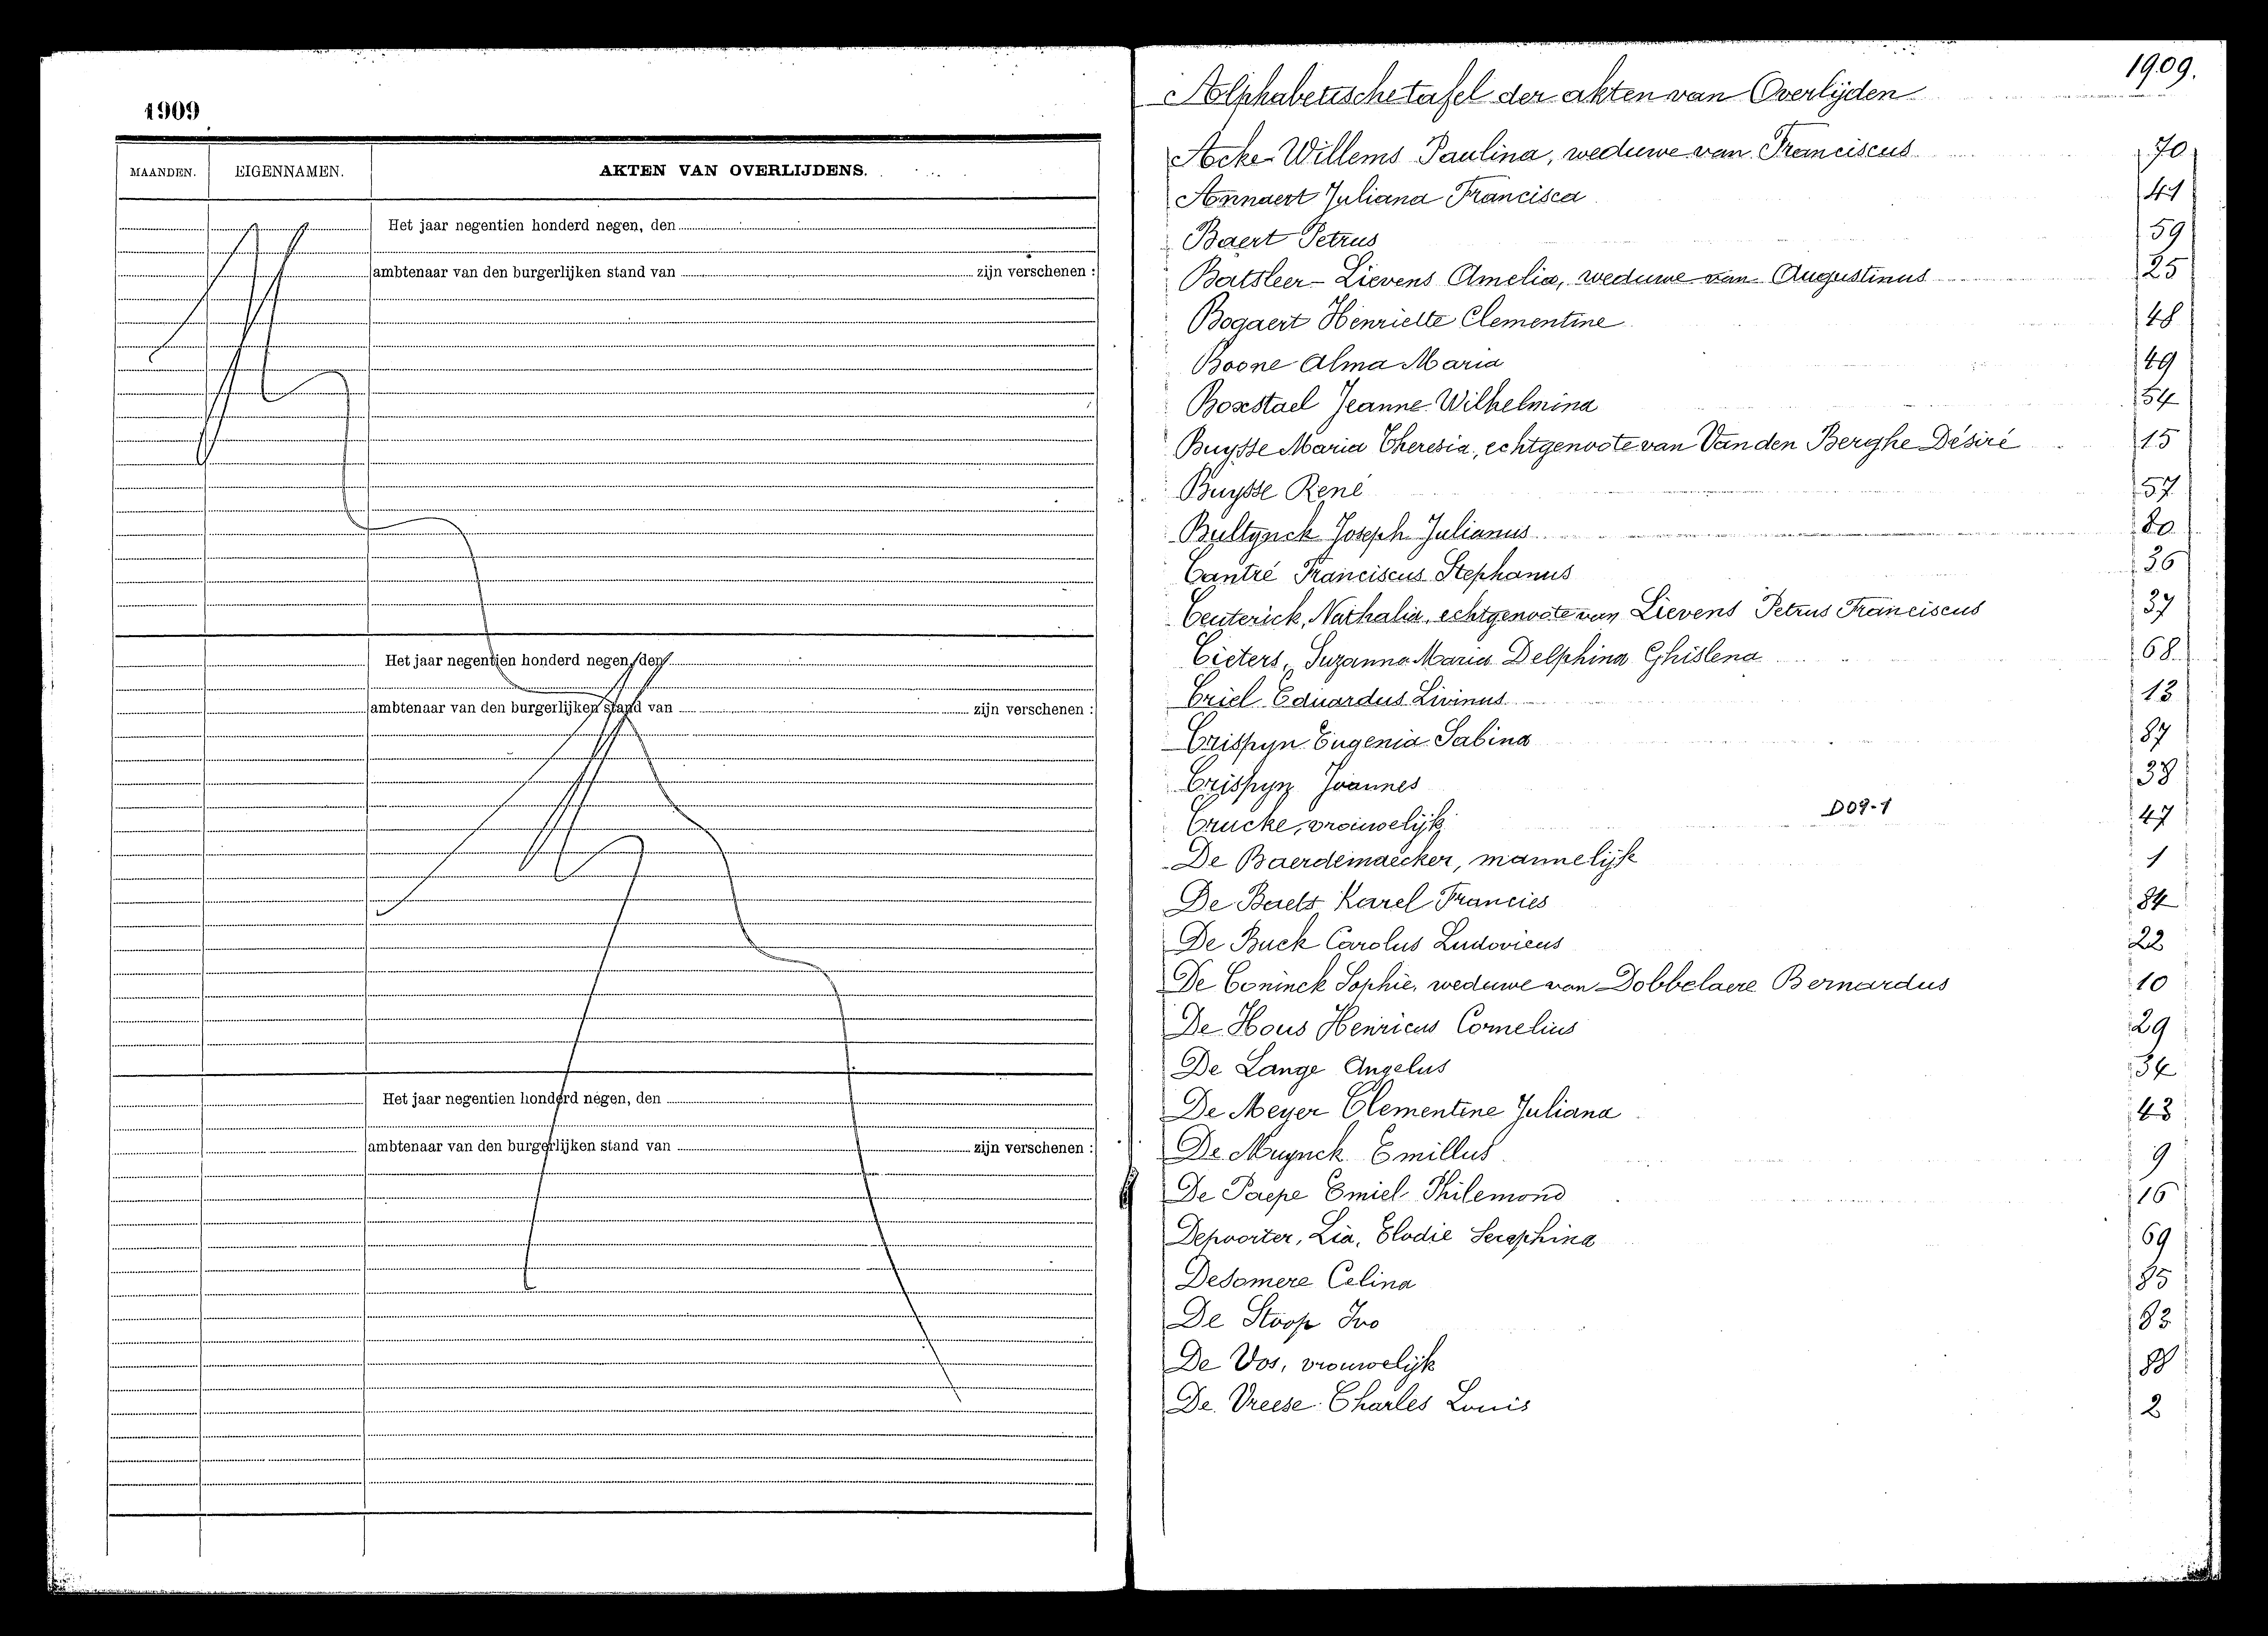 1909
MAANDEN. EIGENNAMEN. AKTEN VAN OVERLIJDENS.
Het jaar negentien honderd negen, den
ambtenaar van den burgerlijken stand van zijn verschenen :
Het jaar negentien honderd negen, den
ambtenaar van den burgerlijken stand van zijn verschenen :
Het jaar negentien honderd negen, den
ambtenaar van den burgerlijken stand van zijn verschenen :
1909.
Alphabetische tafel der akten van Overlijden
Acke Willems Paulina, weduwe van Franciscus 70
Annaert Juliana Francisca 41
Baert Petrus 59
Batsleer - Lievens Amelia, weduwe van Augustinus 25
Bogaert Henriette Clementine 48
Boone Alma Maria 49
Boxstael Jeanne Wilhelmina 54
Buysse Maria Theresia, echtgenoote van Van den Berghe Désiré 15
Buysse René 57
Bultynck Joseph Julianus 80
Cantré Franciscus Stephanus 36
Ceuterick, Nathalia, echtgenoote van Lievens Petrus Franciscus 37
Cieters, Suzanna Maria Delphina Ghislena 68
Criel Eduardus Livinus 13
Crispyn Eugenia Sabina 87
Crispyn Joannes 38
D09-1
Crucke, vrouwelijk 47
De Baerdemaecker, mannelijk 1
De Baets Karel Francies 84
De Buck Carolus Ludovicus 22
De Coninck Sophie, weduwe van Dobbelaere Bernardus 10
De Hous Henricus Cornelius 29
De Lange Angelus 34
De Meyer Clementine Juliana 43
De Muynck Emillus 9
De Paepe Emiel Philemond 16
Depoorter, Lia, Elodie Seraphina 69
Desomere Celina 85
De Stoop Ivo 83
De Vos, vrouwelijk 88
De Vreese Charles Louis 2